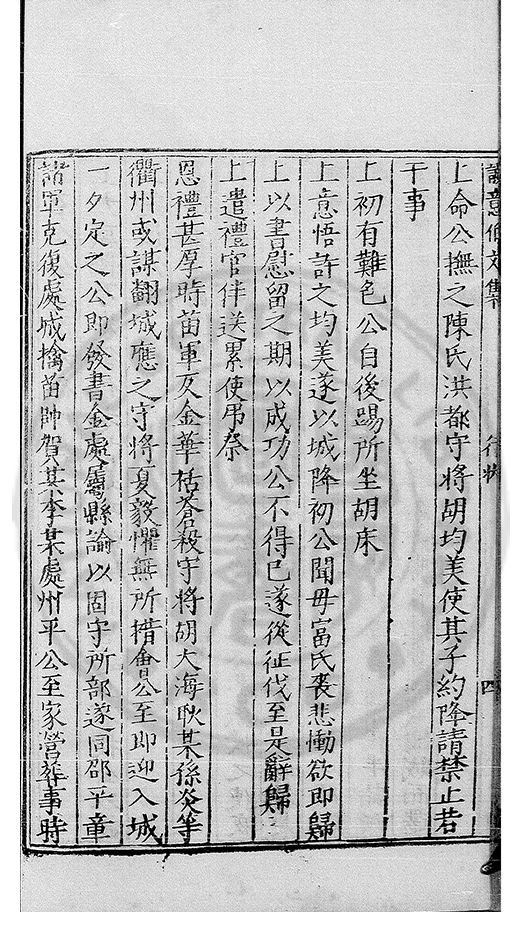 誠意伯文集 行狀 四
上命公撫之陳氏洪都守將胡均美使其子約降請禁止若
干事
上初有難色公自後踢所坐胡床
上意悟許之均美遂以城降初公聞母富氏喪悲慟欲即歸
上以書慰留之期以成功公不得已遂從征伐至是辭歸
上遣禮官伴送累使弔祭
恩禮甚厚時苗軍反金華括蒼殺守將胡大海耿某孫炎等
衢州或謀翻城應之守將夏毅懼無所措會公至即迎入城
一夕定之公即發書金處屬縣諭以固守所部遂同邵平章
諸軍克復處城擒苗帥賀某李某處州平公至家營葬事時